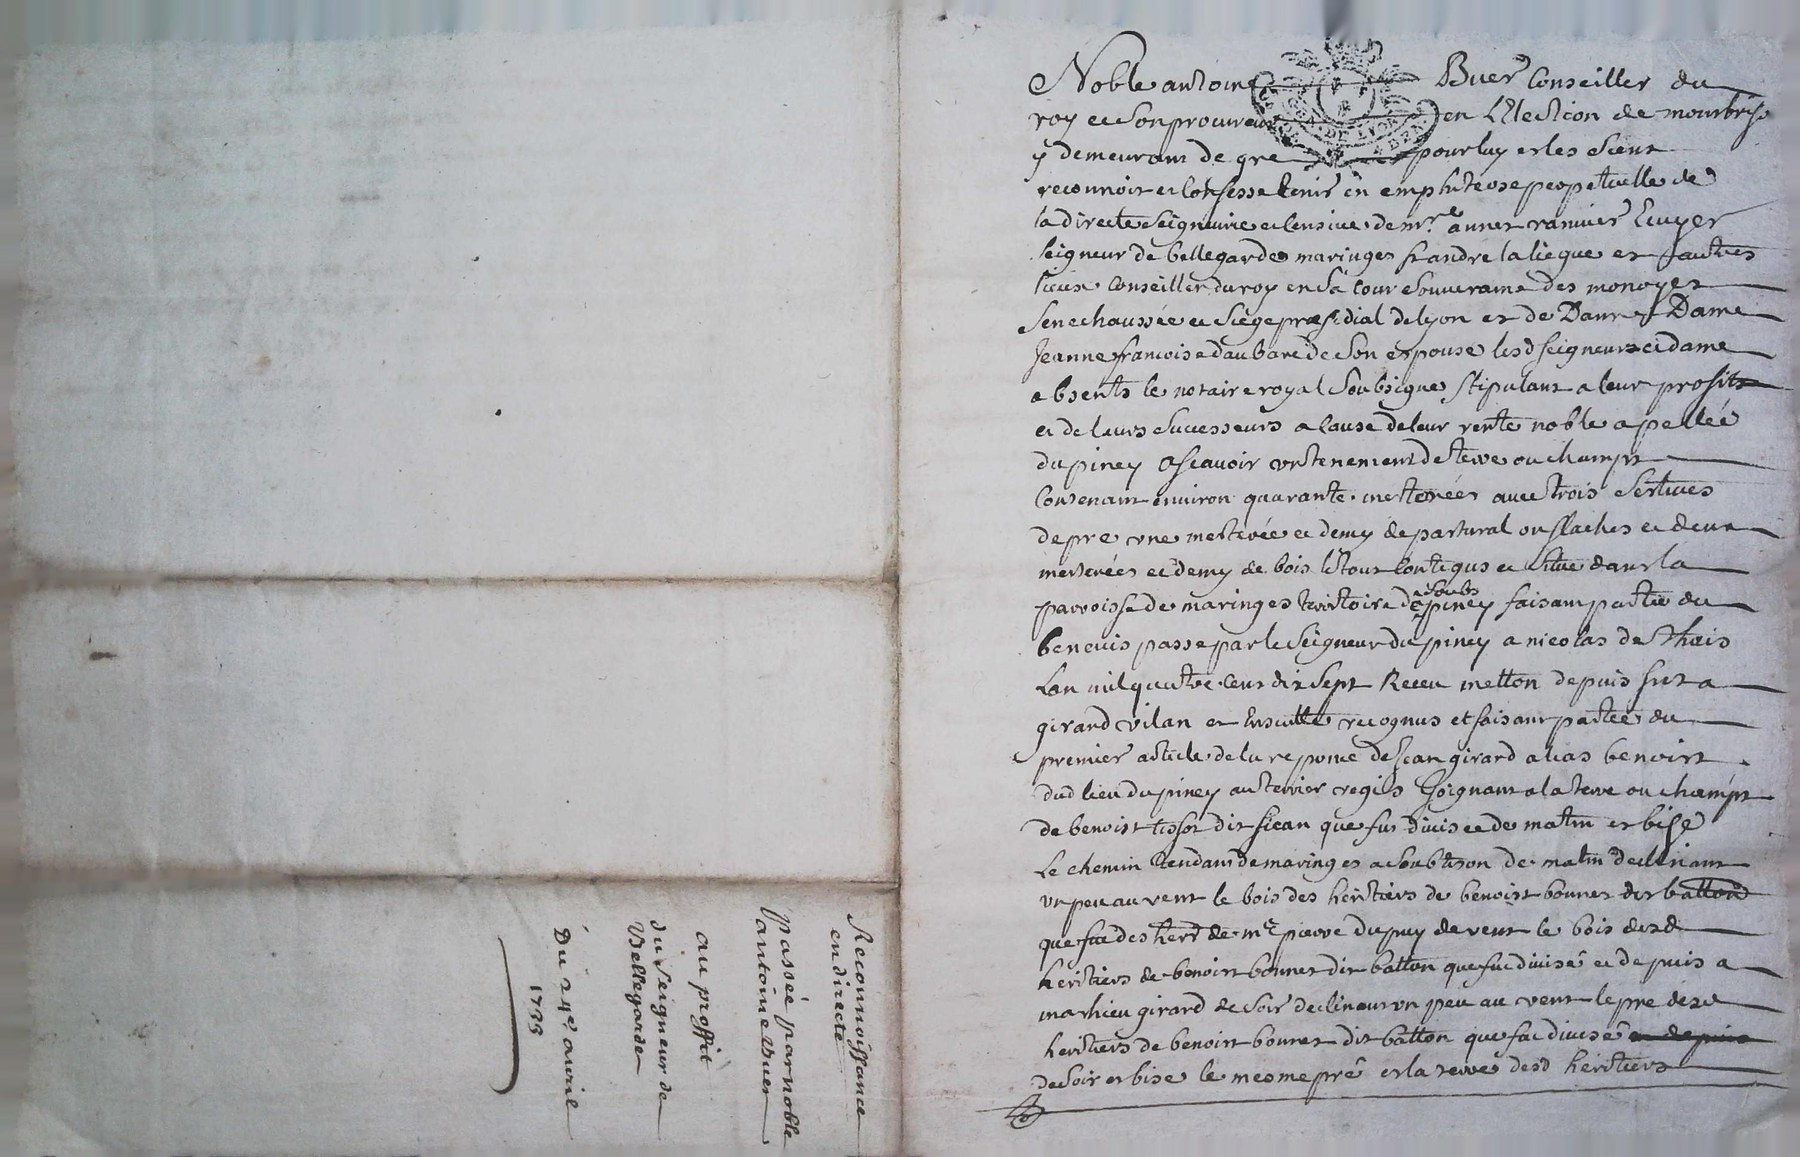 Noble antoine Buer Conseiller du
roy et son procureur en l'Election de montbrison
y demeurant de gre pour luy et les siens
reconnoit et Confesse tenir en emphiteose perpetuelle de
la directe seigneurie et censive de mr. annet ranvier Ecuyer
seigneur de bellegarde maringes st andre la liegue et autres
lieux Conseiller du roy en sa Cour souveraine des monoyes
senechaussée et siege præsidial de lyon et de Dame
Jeanne francoise daubarede son espouse lesd seigneur et dame
absents le notaire royal soubsigné stipulant a leur profit
et de leurs successeurs a cause de leur rente noble apellée
du piney Ascavoir un tenement de terre ou champs
Contenant environ quarante mesterées avec trois
de pre une mesterée et demy de pastural ou flaches et deux
mesterées et demy de bois le tout Contigus et situé dans la
parroisse de maringes territoire de piney faisant partie du
benevis passe par le seigneur du piney a nicolas de Thais
Lan mil quatre cent dix sept Receu metton depuis fut a
girard vilan et Ensuitte recognus et faisant partie du
premier article de la reponce de Jean girard alias benoist
dud lieu du piney au terrier regis Joignant a la terre ou champs
de benoist tissot dit sican que fut divisée de matin et bise
Le chemin tendant de maringes a de matin declinant
un peu au vent le bois des heritiers de benoist bonnet dit batton
que fut des herd de me pierre dupuy de vent le bois desd
heritiers de benoist bonnet dit batton que fut divisé et depuis a
mathieu girard de soir declinant un peu au vent le pre desd
heritiers de benoist bonnet dit batton que fut divisé
de soir et bise le mesme pré et la terre desd heritiers
Reconnoissance
en directe
passée par noble
antoine Buer
au proffit
du seigneur de
Bellegarde
Du 24e. avril
1733